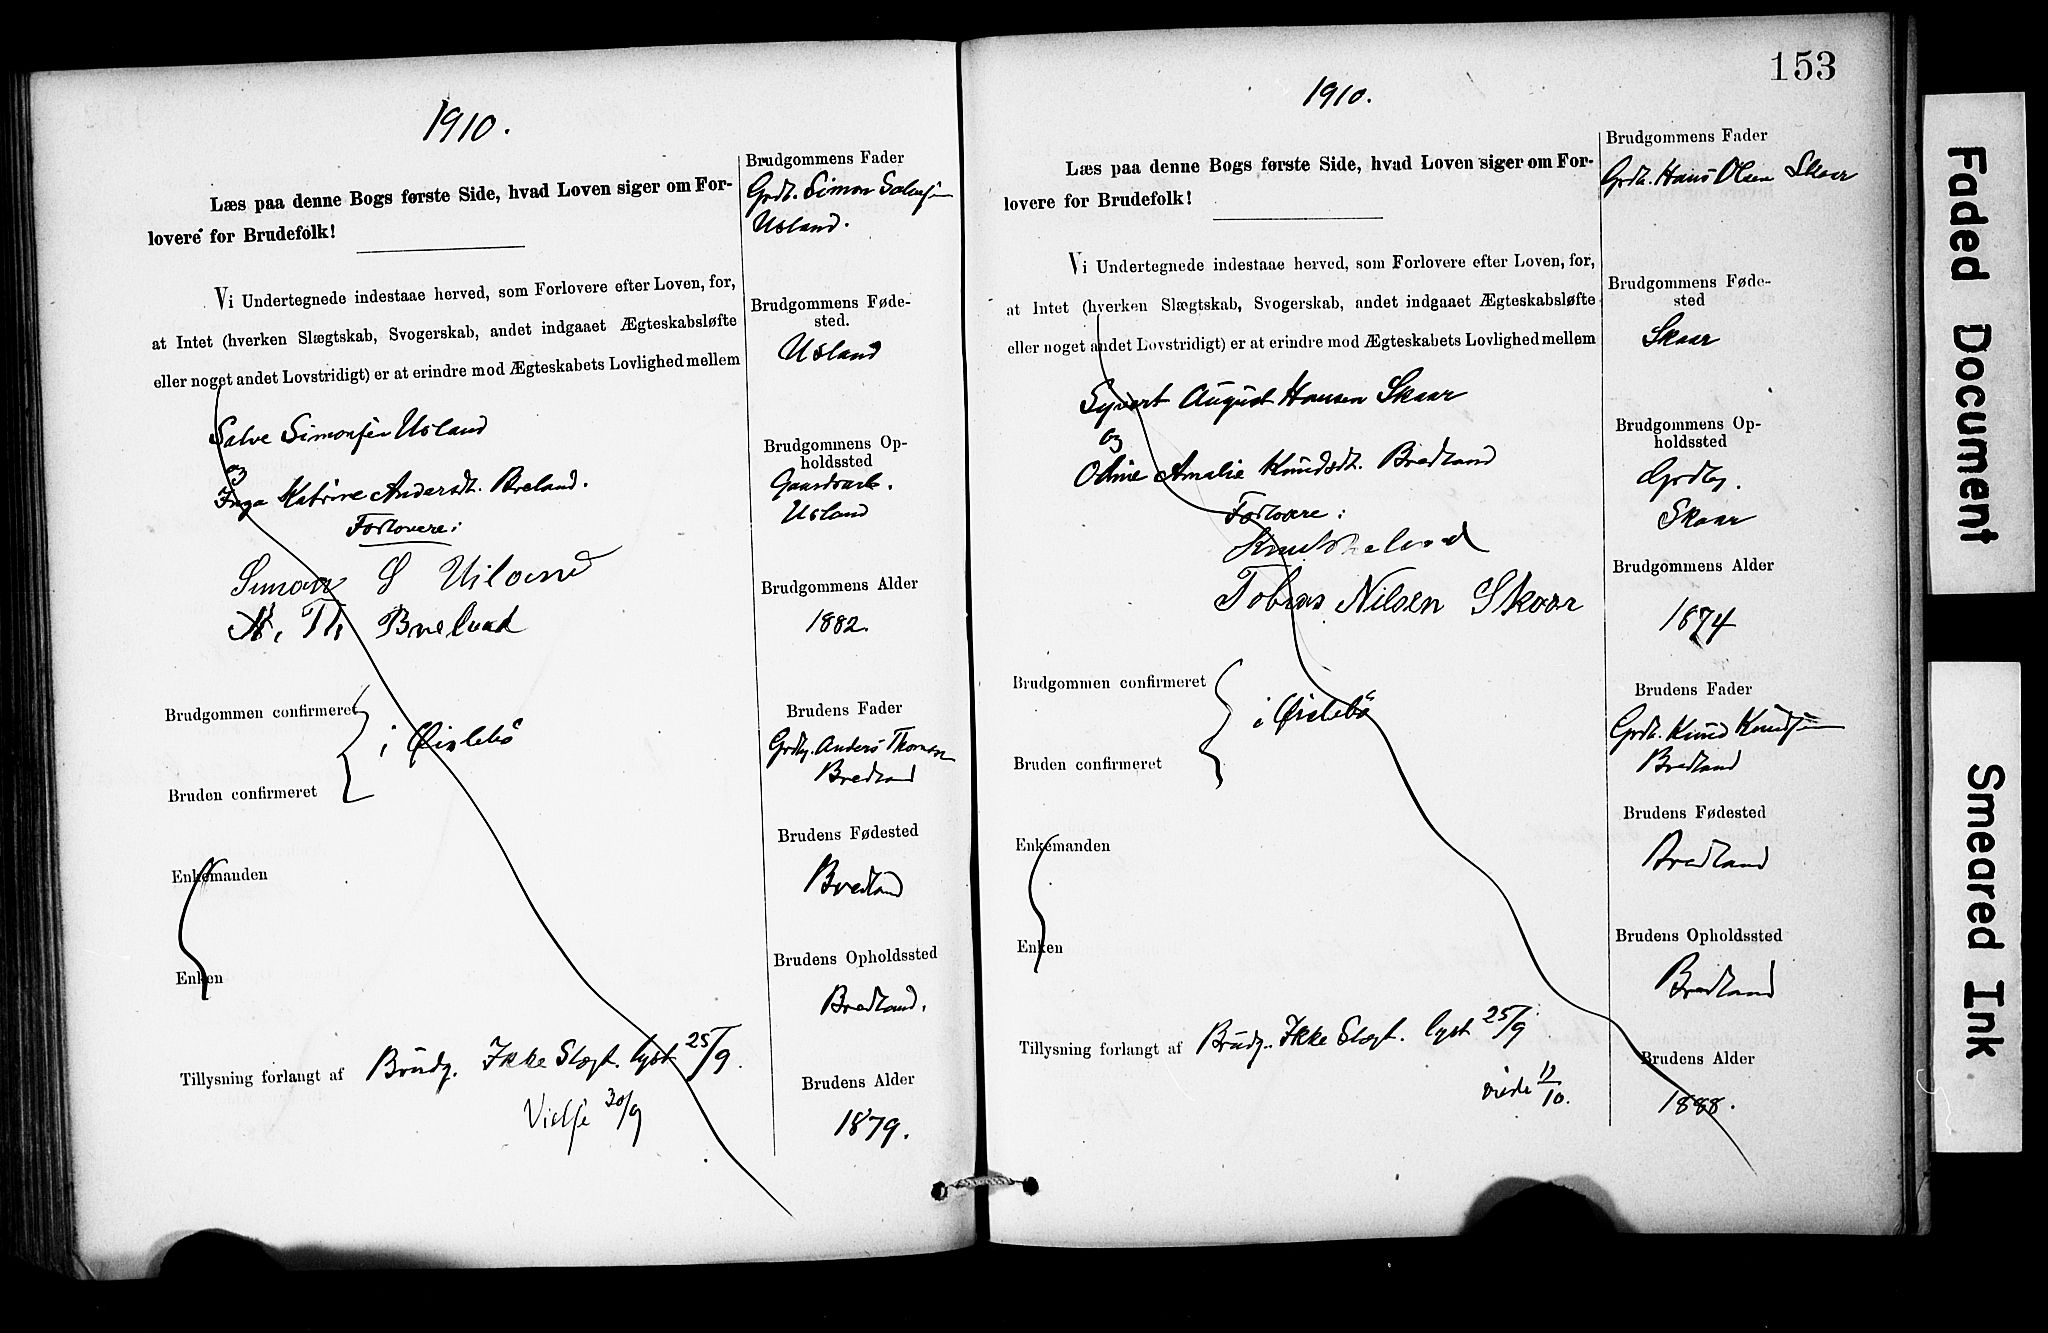 1910.
Læs paa denne Bogs første Side, hvad Loven siger om For-
lovere for Brudefolk!
Vi Undertegnede indestaae herved, som Forlovere efter Loven, for,
at Intet (hverken Slægtskab, Svogerskab, andet indgaaet Ægteskabsløfte
eller noget andet Lovstridigt) er at erindre mod Ægteskabets Lovlighed mellem
Salve Simonsen Usland
og
Inga Katrine Andersdt. Breland.
Forlovere:
Simon S Usland
A. Th. Breland
Brudgommen confirmeret
i Øislebø
Bruden confirmeret
Enkemanden
Enken
Tillysning forlangt af Brudg. Ikke Slægt. lyst 25/9.
Vielse 30/9
Brudgommens Fader
Grdb. Simon Salvesen
Usland.
Brudgommens Føde-
sted.
Usland
Brudgommens Op-
holdssted
Gaardarb.
Usland
Brudgommens Alder
1882.
Brudens Fader
Grdbg. Anders Thomsen
Bredland
Brudens Fødested
Bredland
Brudens Opholdssted
Bredland.
Brudens Alder
1879.
153
1910.
Læs paa denne Bogs første Side, hvad Loven siger om For-
lovere for Brudefolk!
Vi Undertegnede indestaae herved, som Forlovere efter Loven, for,
at Intet (hverken Slægtskab, Svogerskab, andet indgaaet Ægteskabsløfte
eller noget andet Lovstridigt) er at erindre mod Ægteskabets Lovlighed mellem
Syvert August Hansen Skaar
og
Odine Amalie Knudsdt. Bredland
Forlovere:
Tobias Nilsen Skaar
Brudgommen confirmeret
i Øislebø
Bruden confirmeret
Enkemanden
Enken
Tillysning forlangt af Brudg. Ikke Slægt. lyst 25/9
viede 12/10.
Brudgommens Fader
Grdb. Hans Olsen Skaar
Brudgommens Føde-
sted
Skaar
Brudgommens Op-
holdssted
Grdbg.
Skaar
Brudgommens Alder
1874
Brudens Fader
Grdb. Knud Knudsen
Bredland
Brudens Fødested
Bredland
Brudens Opholdssted
Bredland
Brudens Alder
1888.
Faded Document
Smeared Ink